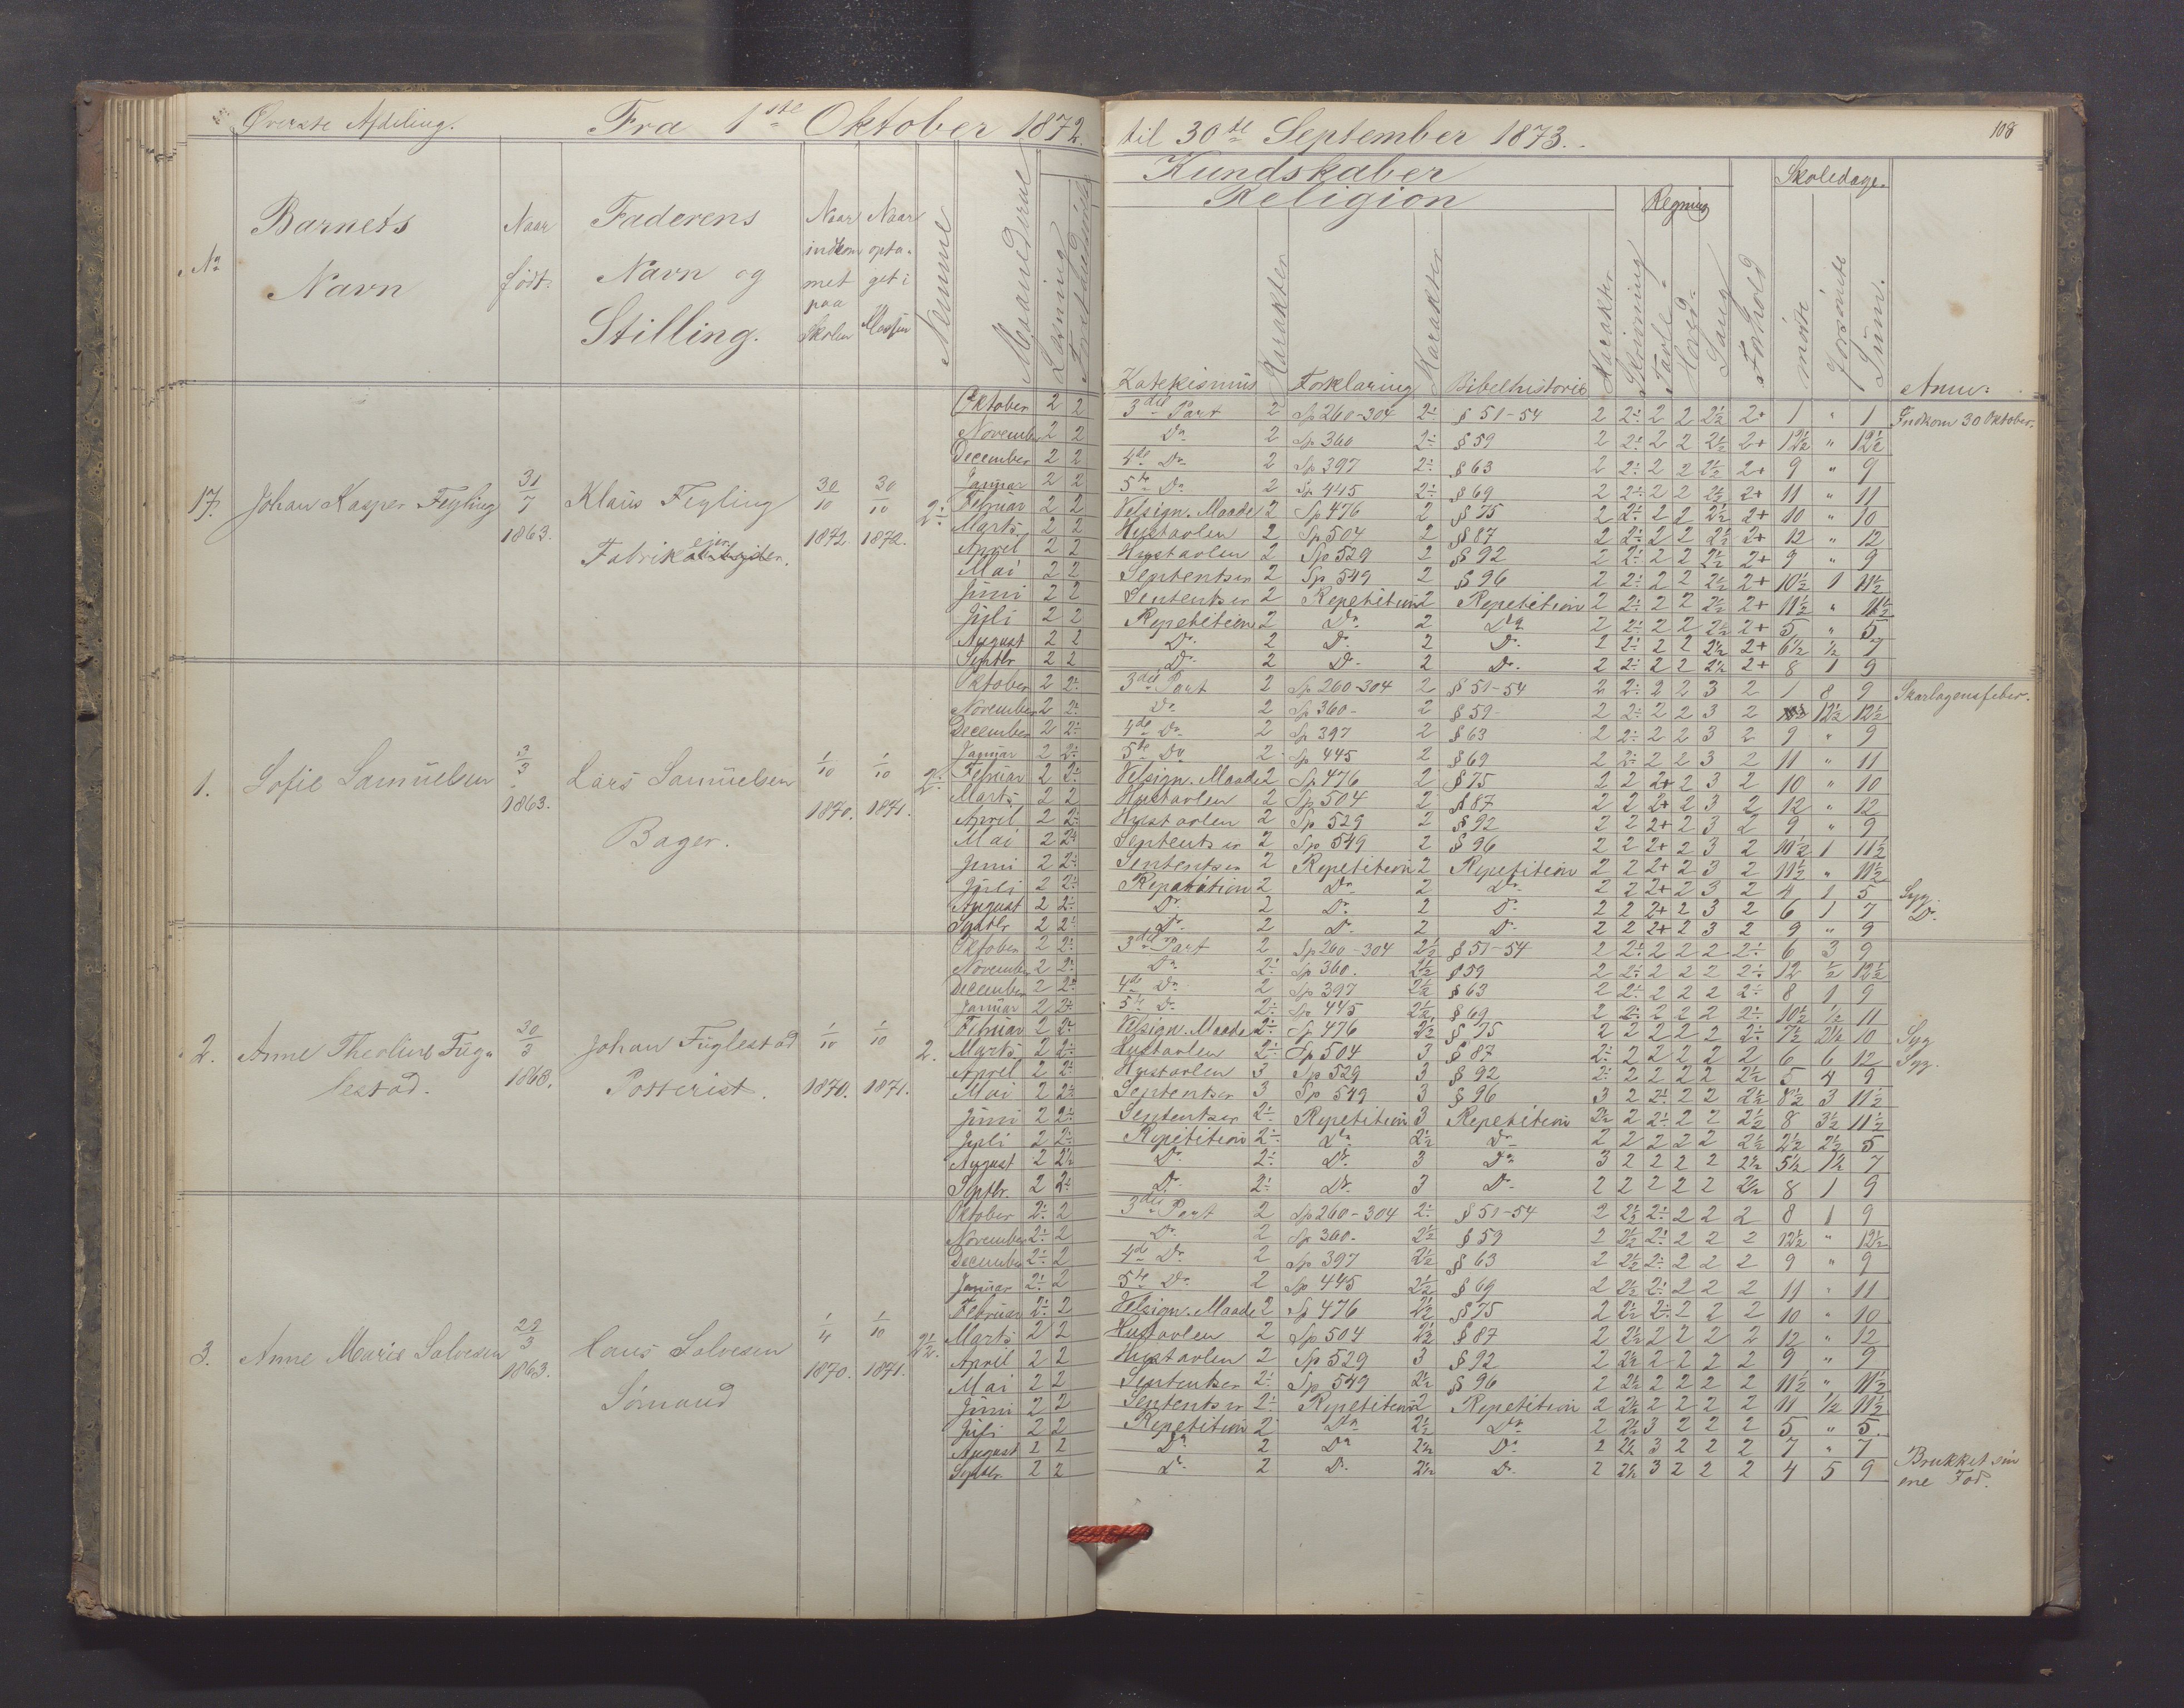 Øverste Afdeling. Fra 1ste Oktober 1872. til 30te September 1873. 108
Kundskaber
Religion Regning Skoledage.
No Barnets Navn Naar født. Faderens Navn og Stilling. Naar indkommet paa Skolen Naar optaget i Klassen Nemme Maanederne Læsning Katekismus Karakter Forklaring Karakter Bibelhistorie Karakter Skrivning Tavle- Hoved- Sang Forhold mødte forsømte Sum. Anm:
17. Johan Kasper Feyling 31/7 1863. Klaus Feyling Fabrikejer. 30/10 1872. 30/10 1872. 2÷
Oktober 2 2 3die Part 2 Sp 260-304 2÷ § 51-54 2 2÷ 2 2 2½ 2+ 1 " 1 Indkom 30 Oktober.
November 2 2 Do 2 Sp 360 2÷ § 59 2 2÷ 2 2 2½ 2+ 12½ " 12½
December 2 2 4de Do 2 Sp 397 2÷ § 63 2 2÷ 2 2 2½ 2+ 9 " 9
Januar 2 2 5te Do 2 Sp 445 2÷ § 69 2 2÷ 2 2 2½ 2+ 11 " 11
Februar 2 2 Velsign. Maade 2 Sp 476 2 § 75 2 2÷ 2 2 2½ 2+ 10 " 10
Marts 2 2 Hustavlen 2 Sp 504 2 § 87 2 2÷ 2 2 2½ 2+ 12 " 12
April 2 2 Hustavlen 2 Sp 529 2 § 92 2 2÷ 2 2 2½ 2+ 9 " 9
Mai 2 2 Sententser 2 Sp 549 2 § 96 2 2÷ 2 2 2½ 2+ 10½ 1 11½
Juni 2 2 Sententser 2 Repetition 2 Repetition 2 2÷ 2 2 2½ 2+ 11½ " 11½
Juli 2 2 Repetition 2 Do 2 Do 2 2÷ 2 2 2½ 2+ 5 " 5
August 2 2 Do 2 Do 2 Do 2 2÷ 2 2 2½ 2+ 6½ ½ 7
Septbr 2 2 Do 2 Do 2 Do 2 2÷ 2 2 2½ 2+ 8 1 9
1. Sofie Samuelsen 3/3 1863. Lars Samuelsen Bager. 1/10 1870. 1/10 1871. 2÷
Oktober 2 2÷ 3die Part 2 Sp 260-304 2 § 51-54 2 2÷ 2 2 3 2 1 8 9 Skarlagensfeber.
November 2 2÷ Do 2 Sp 360- 2 § 59- 2 2÷ 2 2 3 2 12½ 12½
December 2 2÷ 4de Do 2 Sp 397 2 § 63 2 2÷ 2 2 3 2 9 " 9
Januar 2 2÷ 5te Do 2 Sp 445 2 § 69 2 2÷ 2 2 3 2 11 " 11
Februar 2 2÷ Velsign. Maade 2 Sp 476 2 § 75 2 2 2+ 2 3 2 10 " 10
Marts 2 2 Hustavlen 2 Sp 504 2 § 87 2 2 2+ 2 3 2 12 " 12
April 2 2÷ Hustavlen 2 Sp 529 2 § 92 2 2 2+ 2 3 2 9 " 9
Mai 2 2÷ Sententser 2 Sp 549 2 § 96 2 2 2+ 2 3 2 10½ 1 11½
Juni 2 2÷ Sententser 2 Repetition 2 Repetition 2 2 2+ 2 3 2 11½ " 11½
Juli 2 2÷ Repetition 2 Do 2 Do 2 2 2+ 2 3 2 4 1 5 Syg.
August 2 2÷ Do 2 Do 2 Do 2 2 2+ 2 3 2 6 1 7 Do
Septbr 2 2÷ Do 2 Do 2 Do 2 2 2+ 2 3 2 9 " 9
2. Anne Theoline Fuglestad. 30/3 1863. Johan Fuglestad Posterist. 1/10 1870. 1/10 1871. 2.
Oktober 2 2÷ 3die Part 2 Sp 260-304 2½ § 51-54 2 2÷ 2 2 2 2÷ 6 3 9
November 2 2÷ Do 2÷ Sp 360. 2½ § 59 2 2÷ 2 2 2 2÷ 12 ½ 12½
December 2 2÷ 4de Do 2 Sp 397 2½ § 63 2 2÷ 2 2 2 2÷ 8 1 9
Januar 2 2÷ 5te Do 2÷ Sp 445 2½ § 69 2 2÷ 2 2 2 2÷ 10½ ½ 11
Februar 2 2÷ Velsign. Maade 2÷ Sp 476 2½ § 75 2 2 2 2 2 2÷ 7½ 2½ 10 Syg
Marts 2 2÷ Hustavlen 2÷ Sp 504 3 § 87 2÷ 2 2 2 2 2 6 6 12 Syg.
April 2 2÷ Hustavlen 3 Sp 529 3 § 92 2÷ 2 2 2 2 2½ 5 4 9
Mai 2 2÷ Sententser 3 Sp 549 3 § 96 3 2 2÷ 2 2 2½ 8½ 3 11½
Juni 2 2÷ Sententser 2÷ Repetition 3 Repetition 2½ 2 2÷ 2 2 2½ 8 3½ 11½
Juli 2 2÷ Repetition 2÷ Do 2½ Do 2 2 2 2 2 2½ 2½ 2½ 5
August 2 2½ Do 2÷ Do 3 Do 3 2 2 2 2 2½ 5½ 1½ 7
Septbr. 2 2÷ Do 2÷ Do 3 Do 2 2 2 2 2 2½ 8 1 9
3. Anne Marie Salvesen 22/3 1863. Hans Salvesen Sømand 1/11 1870. 1/10 1871. 2½.
Oktober 2÷ 2 3die Part 2 Sp 260-304 2÷ § 51-54 2 2½ 2÷ 2 2 2 8 1 9
November 2÷ 2 Do 2 Sp 360- 2½ § 59 2 2½ 2÷ 2 2 2 12½ " 12½
December 2÷ 2 4de Do 2 Sp 397 2½ § 63 2 2½ 2÷ 2 2 2 9 " 9
Januar 2÷ 2 5te Do 2 Sp 445 2½ § 69 2 2½ 2÷ 2 2 2 11 " 11
Februar 2÷ 2 Velsign. Maade 2 Sp 476 2½ § 75 2 2½ 2÷ 2 2 2 10 " 10
Marts 2 2 Hustavlen 2 Sp 504 2½ § 87 2 2½ 2 2 2 2 12 " 12
April 2 2 Hustavlen 2 Sp 529 3 § 92 2 2½ 2 2 2 2 9 " 9
Mai 2 2 Sententser 2÷ Sp 549 2½ § 96 2 2½ 2 2 2 2 11½ " 11½
Juni 2 2 Sententser 2÷ Repetition 2 Repetition 2 2½ 2 2 2 2 11 ½ 11½
Juli 2 2 Repetition 2 Do 2½ Do 2 2½ 3 2 2 2 5 " 5.
August 2 2 Do 2 Do 2½ Do 2 2½ 3 2 2 2 7 " 7
Septbr. 2 2 Do 2 Do 2½ Do 2 2½ 3 2 2 2 4 5 9 Brukket sin
ene Fod.